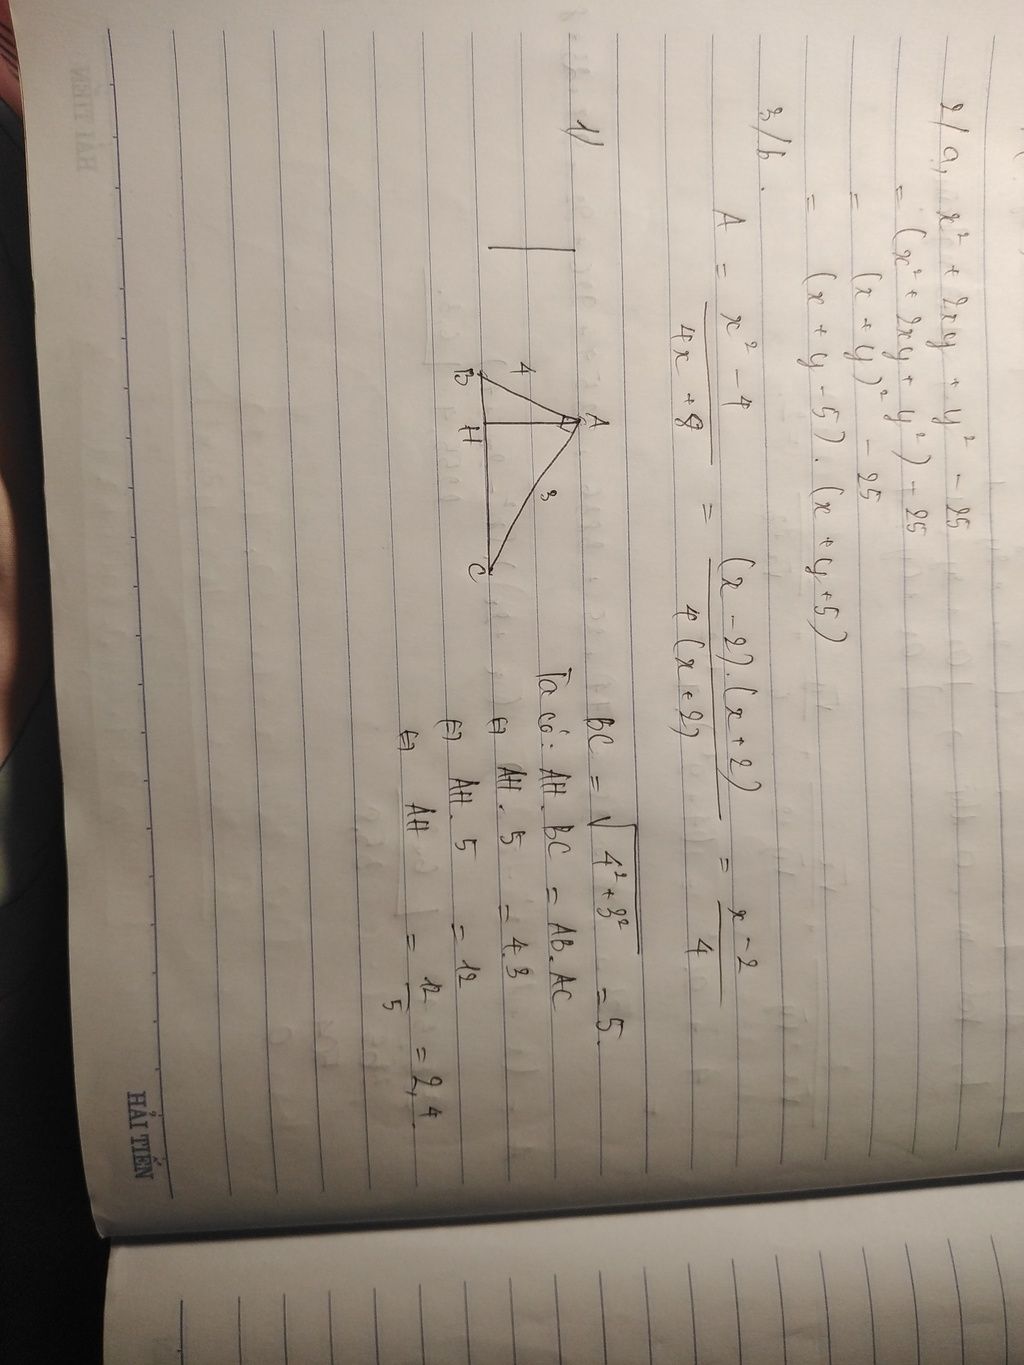 2/ a, x² + 2xy + y² - 25
= (x² + 2xy + y²) - 25
= (x + y)² - 25
= (x + y - 5) . (x + y + 5)
3/ b.
A = x² - 4 / 4x + 8 = (x - 2).(x + 2) / 4(x + 2) = x - 2 / 4
1)
A
4
3
B
H
C
BC = √4² + 3² = 5.
Ta có: AH. BC = AB. AC
⇔ AH. 5 = 4.3
⇔ AH. 5 = 12
⇔ AH = 12 / 5 = 2,4.
HẢI TIẾN